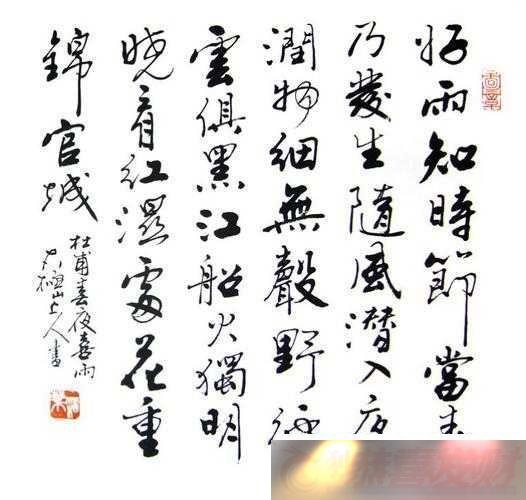 好雨知時節當春
乃發生隨風潛入夜
潤物細無聲野徑
雲俱黑江船火獨明
曉看紅濕處花重
錦官城
杜甫春夜喜雨
山上人書